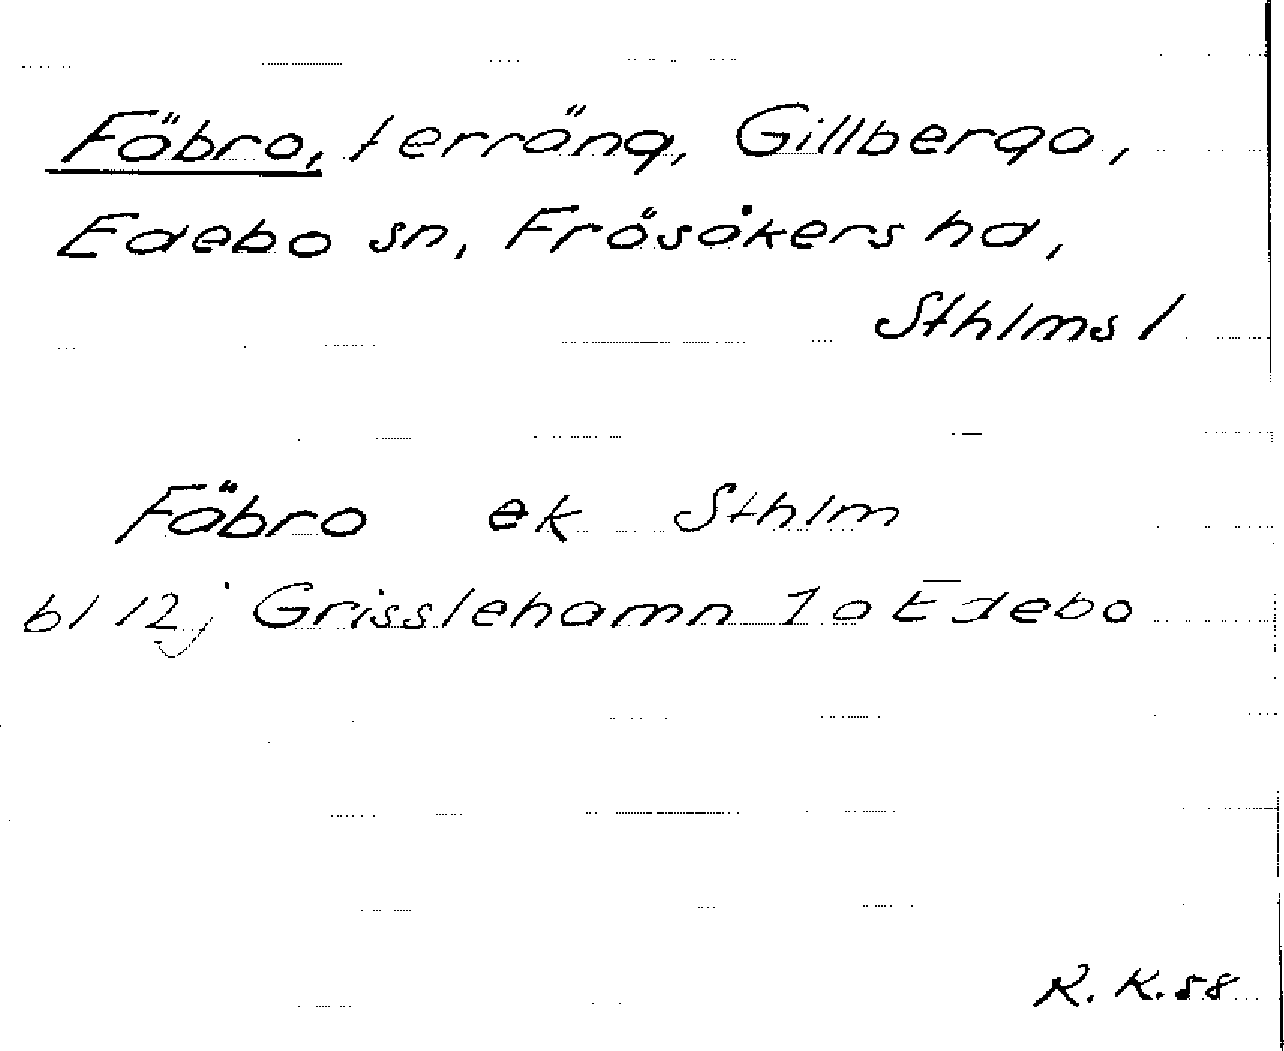 Fäbro, terräng, Gillberga,
Edebo sn, Frösåkers hd,
Sthlms l
Fäbro ek Sthlm
bl 12j Grisslehamn 1o Edebo
R. K. 58